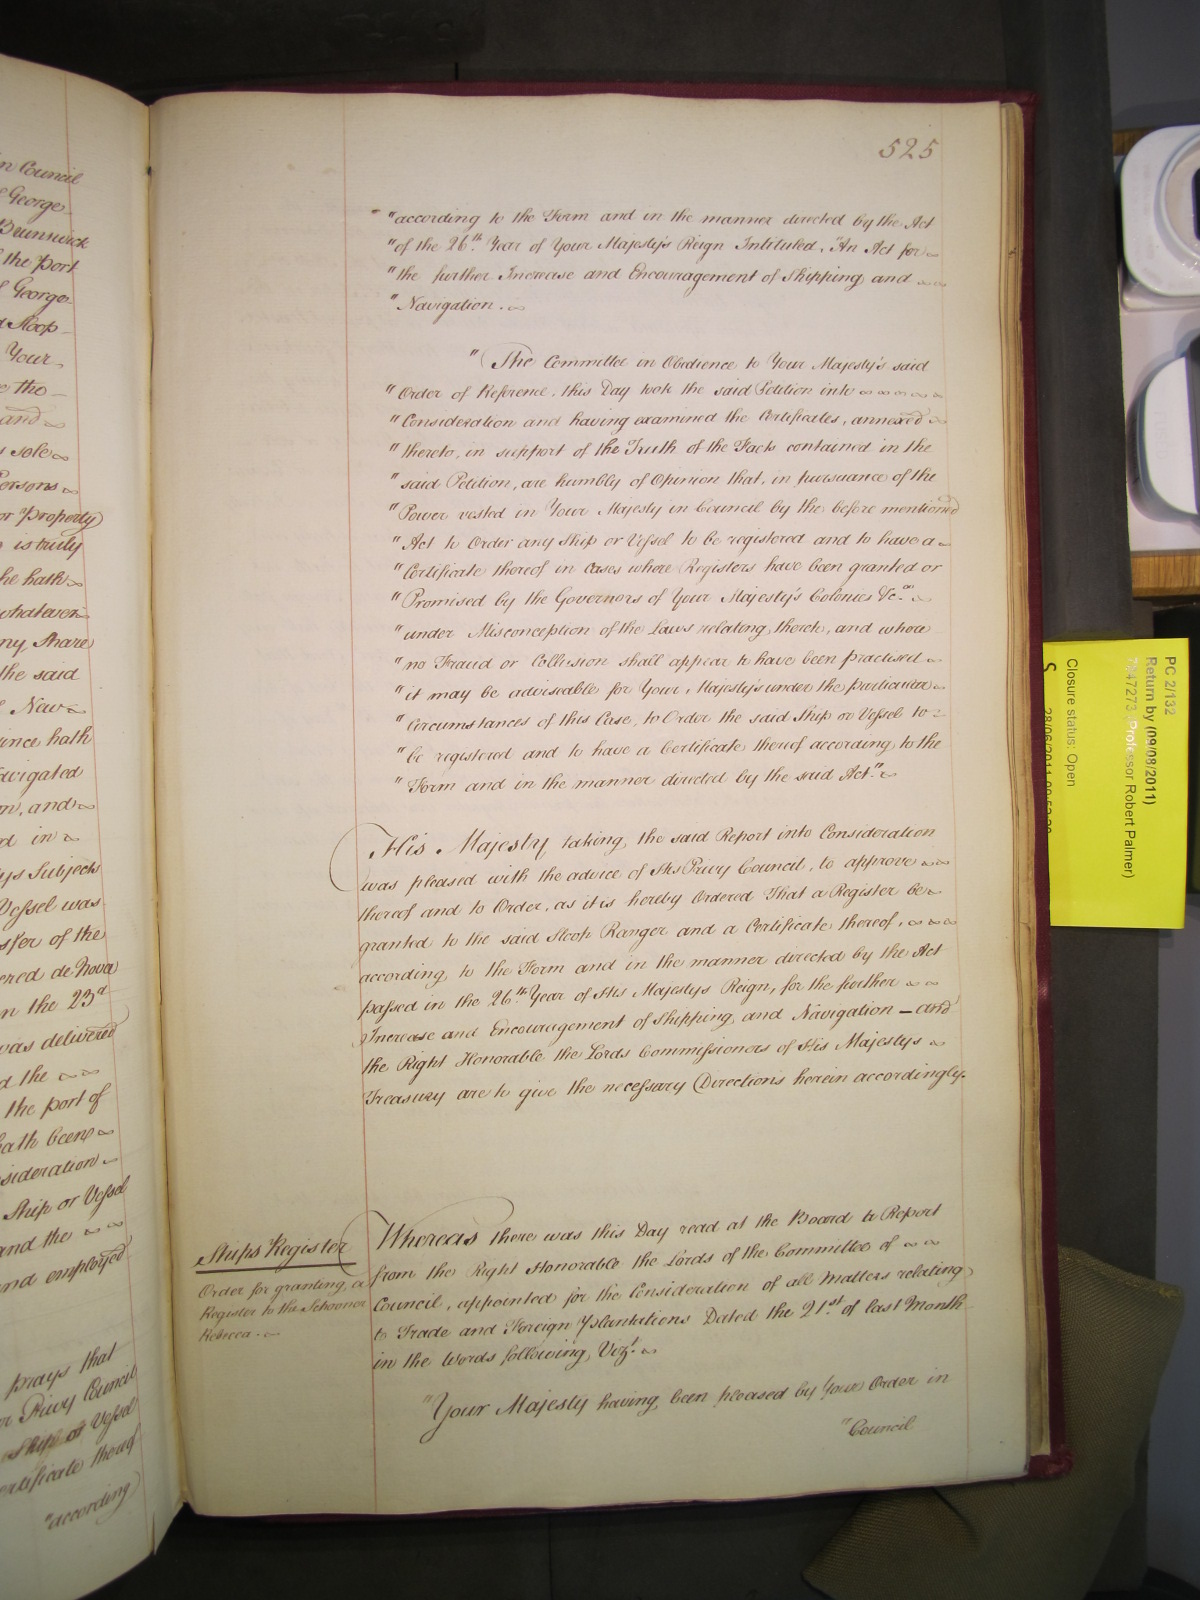 n Council
George
Brunswick
the port
George
Sloop
Your
the
and
sole
Persons
or Property
is truly
he hath
whatever
ny Share
the said
New
ince hath
avigated
n, and
d in
ys Subjects
Vessel was
sfer of the
ered de Nova
n the 23d
was delivered
d the
the port of
hath been
sideration
Ship or Vessel
and the
nd employed
prays that
r Privy Council
Ship or Vessel
ertificate thereof
"according
525
"according to the Form and in the manner directed by the Act
"of the 26th Year of Your Majesty's Reign Intituled, "An Act for
"the further Increase and Encouragement of Shipping and
"Navigation.
"The Committee in Obedience to Your Majesty's said
"Order of Reference, this Day took the said Petition into
"Consideration and having examined the Certificates, annexed
"thereto, in support of the Truth of the Facts contained in the
"said Petition, are humbly of Opinion that, in pursuance of the
"Power vested in Your Majesty in Council by the before mentioned
"Act to Order any Ship or Vessel to be registered and to have a
"Certificate thereof in cases where Registers have been granted or
"Promised by the Governors of Your Majesty's Colonies &c.a
"under Misconception of the Laws relating thereto, and where
"no Fraud or Collusion shall appear to have been practised
"it may be adviseable for Your Majesty's under the particular
"Circumstances of this Case, to Order the said Ship or Vessel to
"be registered and to have a Certificate thereof according to the
"Form and in the manner directed by the said Act."
His Majesty taking the said Report into Consideration
was pleased with the advice of His Privy Council, to approve
thereof and to Order, as it is hereby Ordered That a Register be
granted to the said Sloop Ranger and a Certificate thereof,
according to the Form and in the manner directed by the Act
passed in the 26th Year of His Majestys Reign, for the further
Increase and Encouragement of Shipping and Navigation — and
the Right Honorable the Lords Commissioners of His Majestys
Treasury are to give the necessary Directions herein accordingly.
Ships Register
Order for granting a
Register to the Schooner
Rebecca
Whereas there was this Day read at the Board a Report
from the Right Honorable the Lords of the Committee of
Council, appointed for the Consideration of all Matters relating
to Trade and Foreign Plantations Dated the 21st of last Month
in the Words following, Vizt.
"Your Majesty having been pleased by Your Order in
"Council
PC 2/132
Return by (09/08/2011)
7247273 (Professor Robert Palmer)
Closure status: Open
S